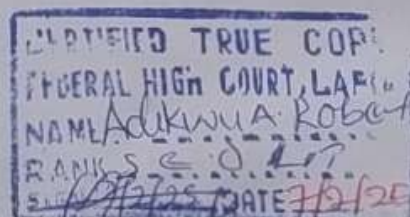 CERTIFIED TRUE COPY
FEDERAL HIGH COURT, LAF
NAME Adikwu A. Robert
RANK S E O LIT
DATE 7/2/25